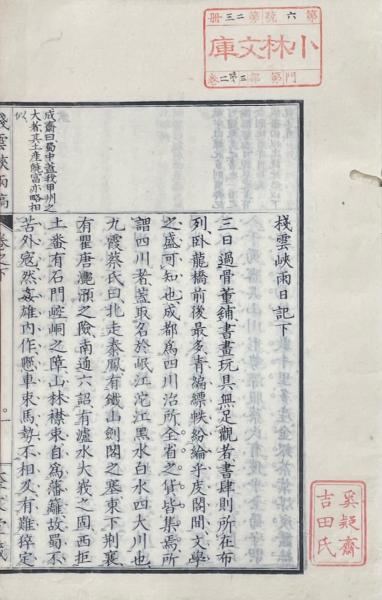 第六號第二三冊
小林文庫
門第部三第二卷
棧雲峽雨日記下
三日過骨董鋪書畫玩具無足觀者書肆則所在布
列臥龍橋前後最多青編縹帙紛綸乎庋閣間文學
之盛可知也成都為四川治所全省之貨皆集焉所
謂四川者蓋取名於岷江沱江黑水白水四大川也
九霞蔡氏曰北走秦鳳有鐵山劍閣之塞東下荊襄
有瞿唐灔澦之險南通六詔有瀘水大峩之固西拒
土番有石門崆峒之障山林襟束自為藩籬故蜀不
苦外寇然姦雄内作懸車束馬勢不相及有難猝定
成齋曰蜀中蓋我甲州之
大者其土產饒富亦略相
似
棧雲峽雨稿
卷之下
一
奚疑齋
吉田氏